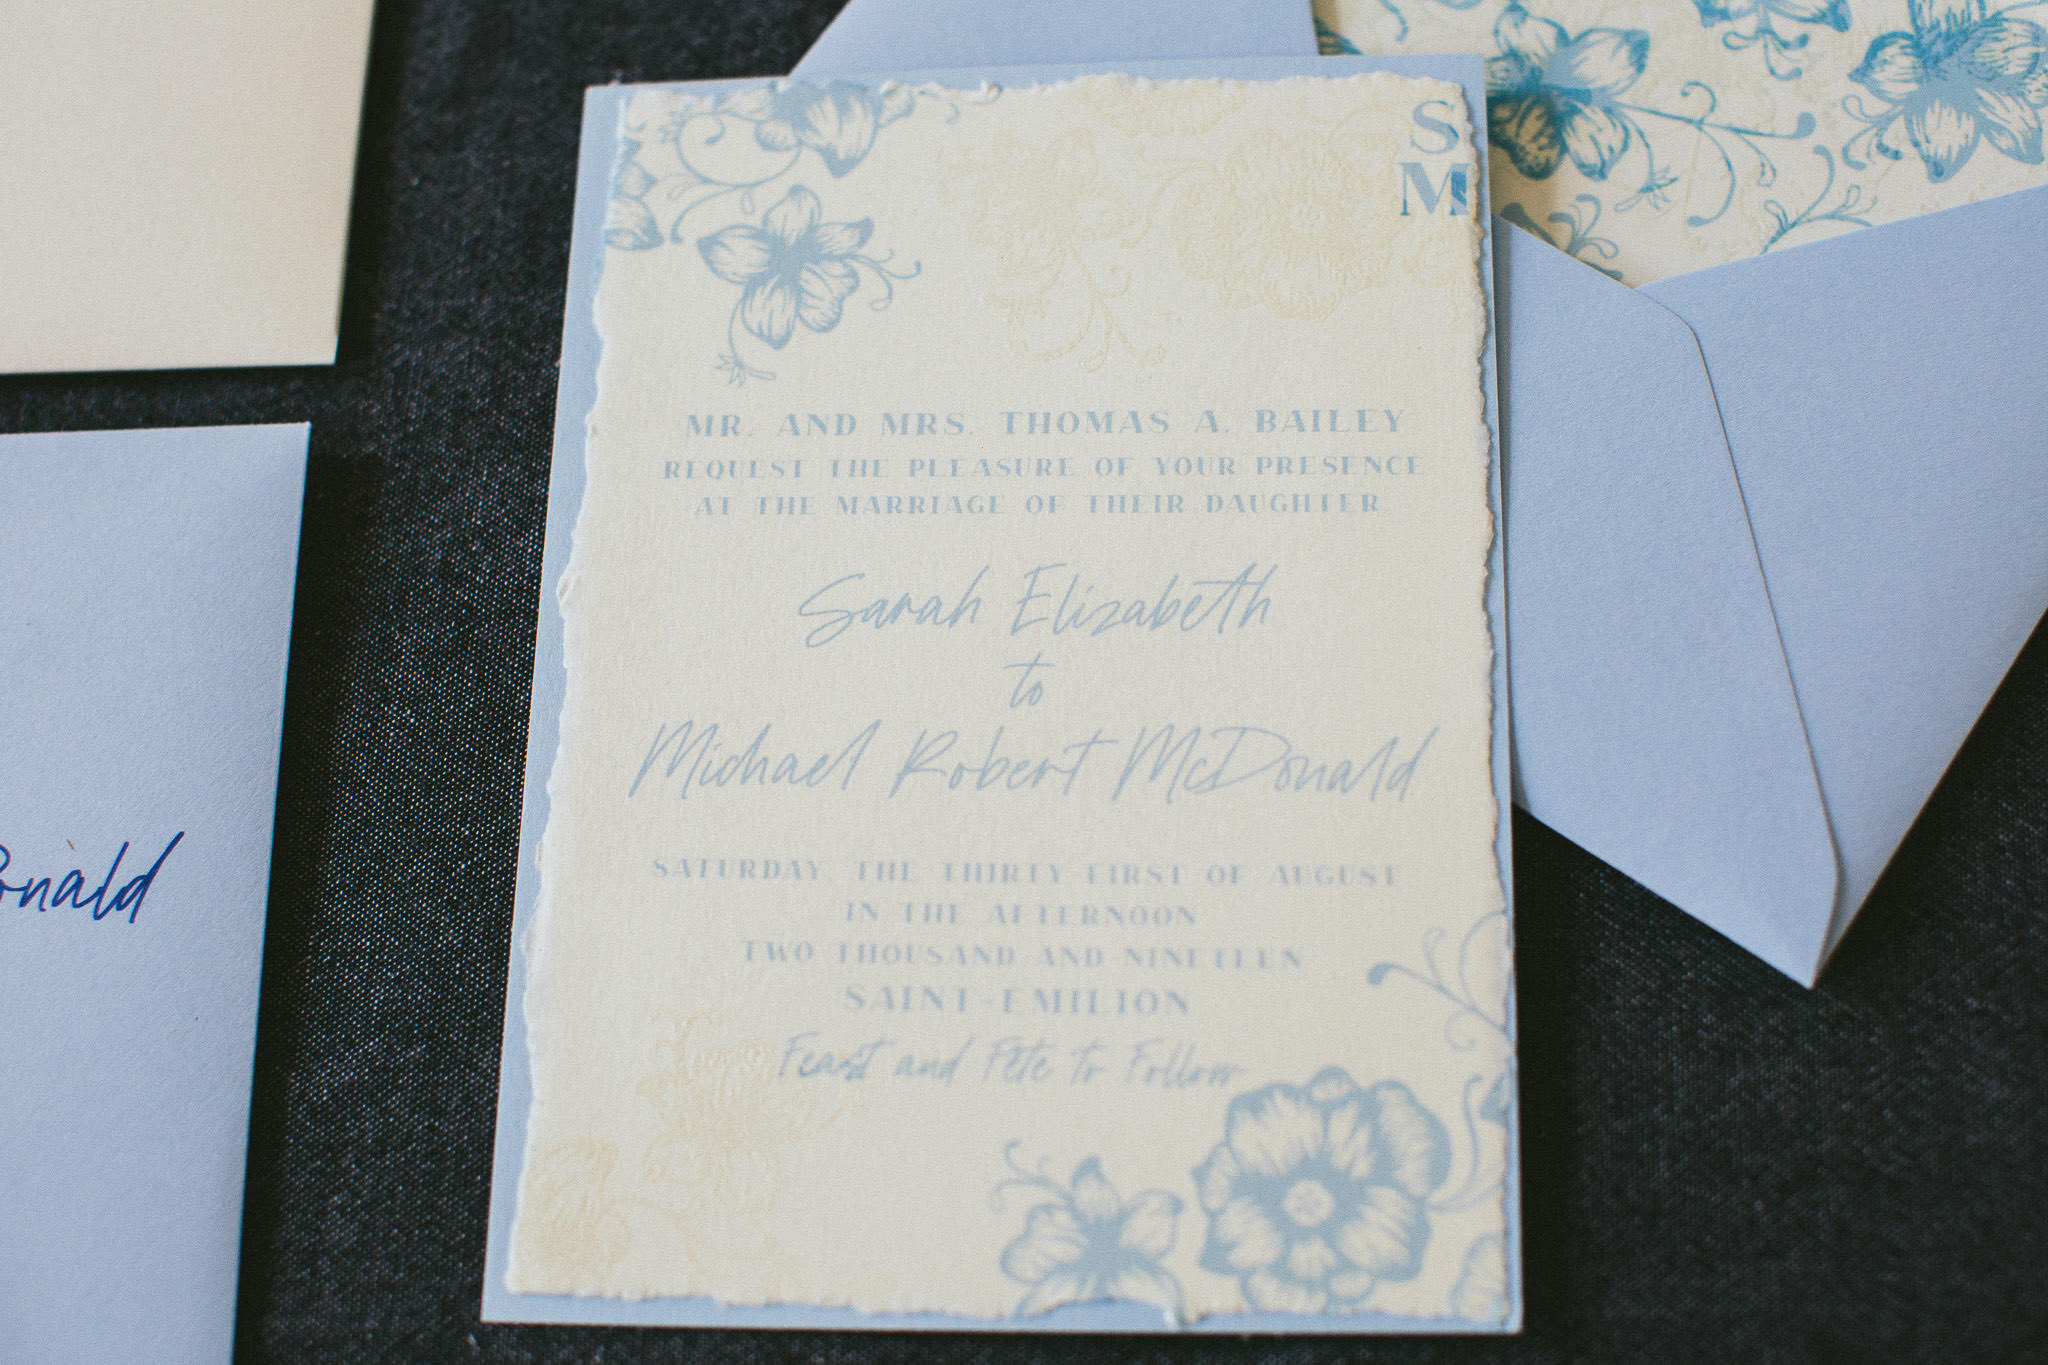 S
M
MR. AND MRS. THOMAS A. BAILEY
REQUEST THE PLEASURE OF YOUR PRESENCE
AT THE MARRIAGE OF THEIR DAUGHTER
Sarah Elizabeth
to
Michael Robert McDonald
SATURDAY, THE THIRTY-FIRST OF AUGUST
IN THE AFTERNOON
TWO THOUSAND AND NINETEEN
SAINT-EMILION
Feast and Fête to Follow
onald